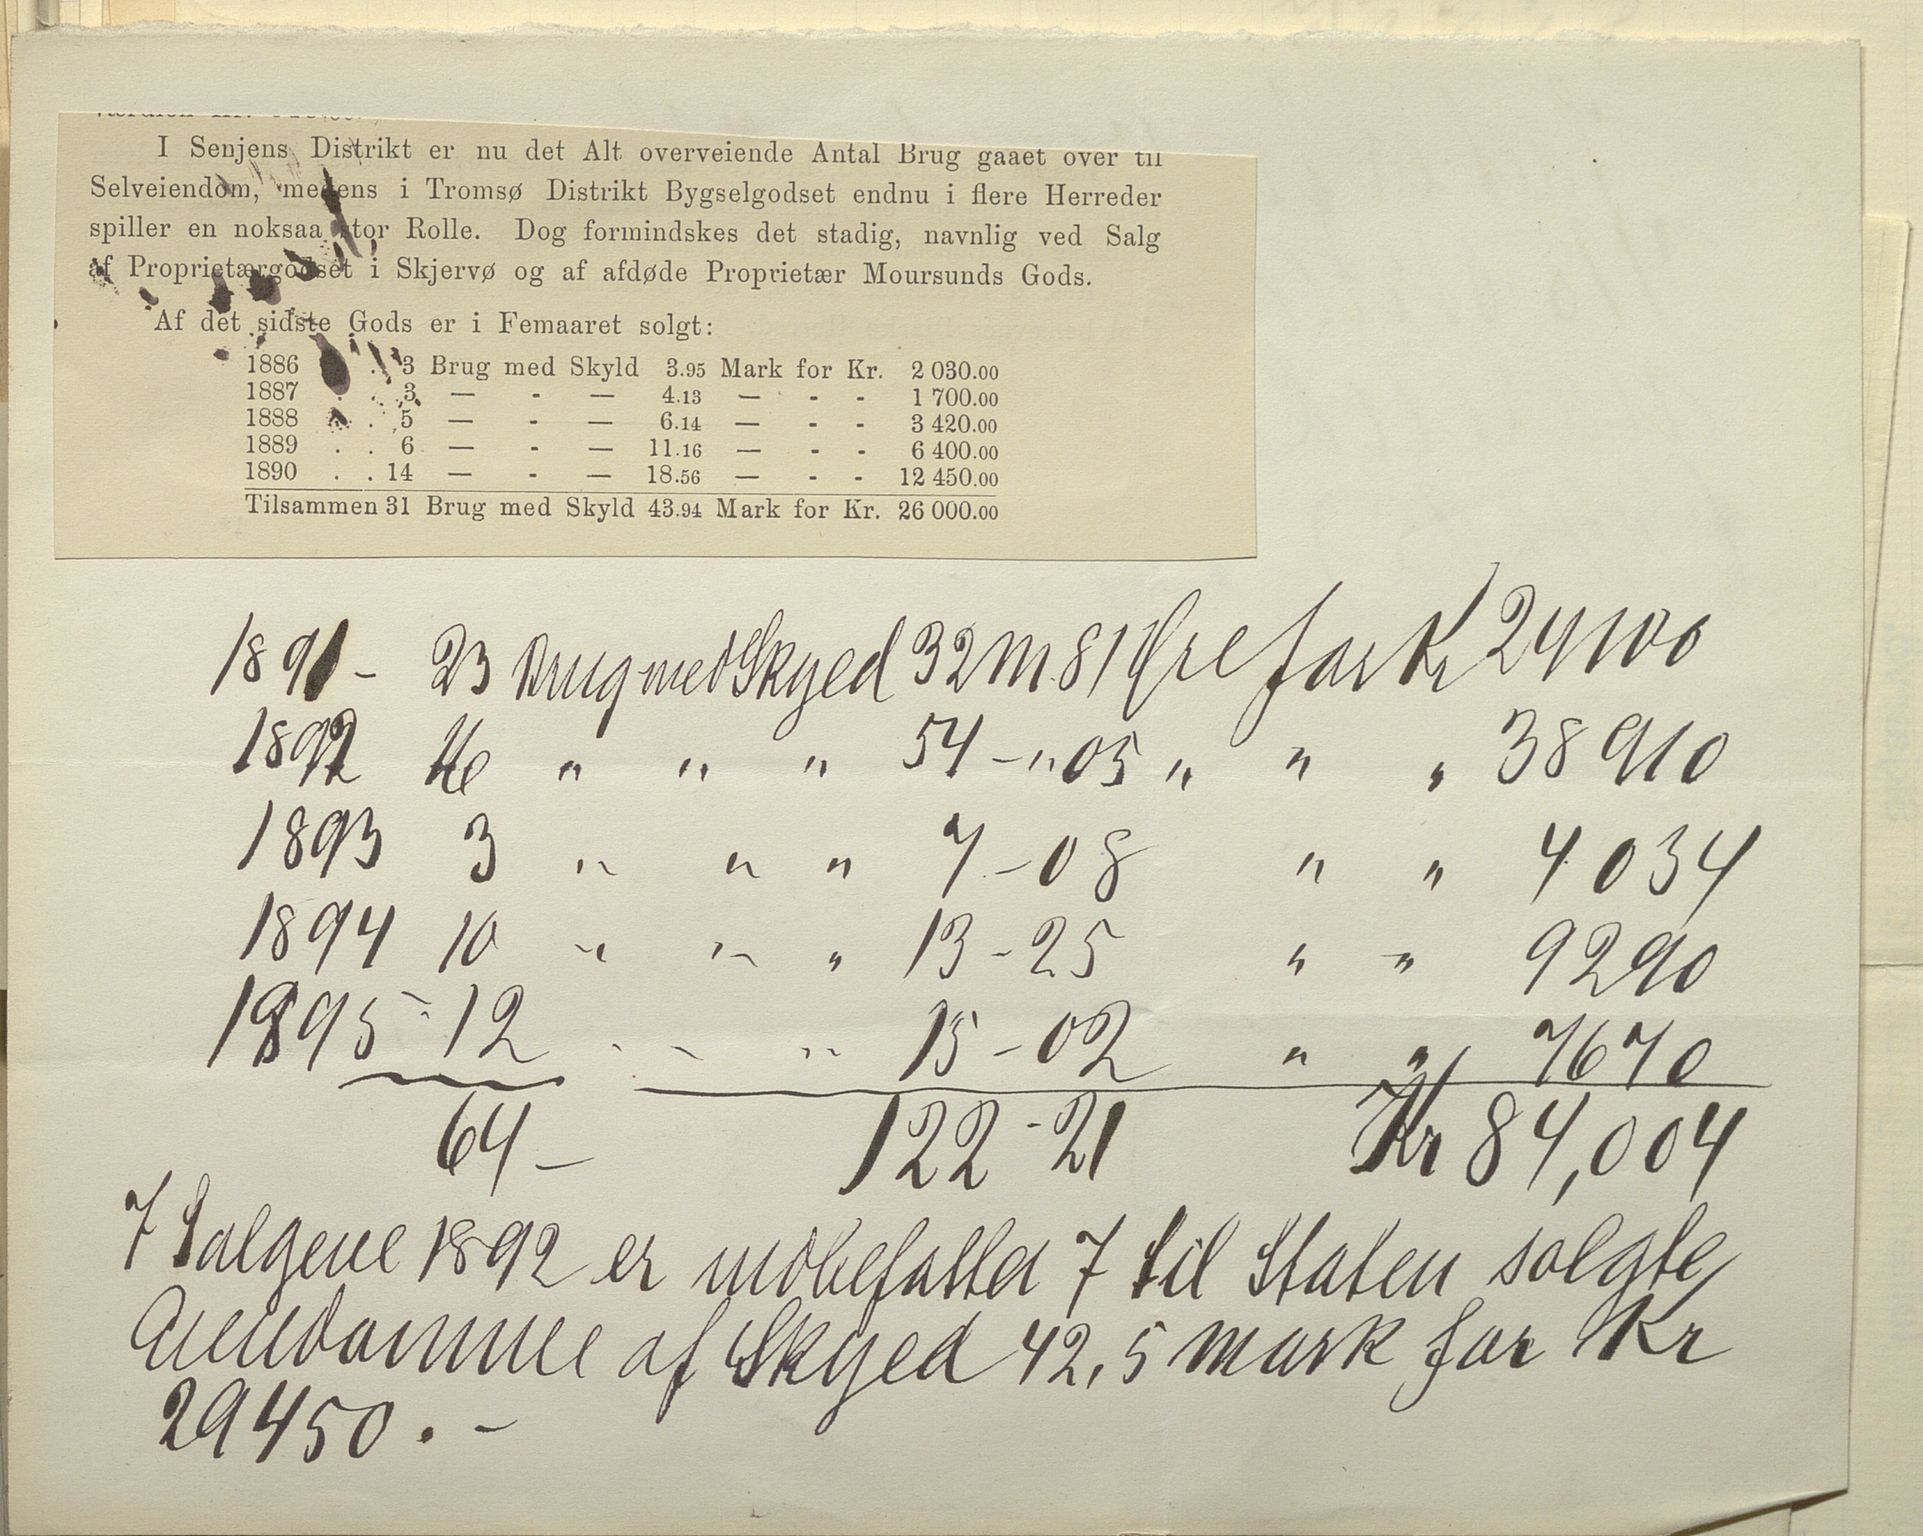 I Senjens Distrikt er nu det Alt overveiende Antal Brug gaaet over til
Selveiendom, medens i Tromsø Distrikt Bygselgodset endnu i flere Herreder
spiller en noksaa stor Rolle. Dog formindskes det stadig, navnlig ved Salg
af Proprietærgodset i Skjervø og af afdøde Proprietær Moursunds Gods.
Af det sidste Gods er i Femaaret solgt:
1886 . . 3 Brug med Skyld 3.95 Mark for Kr. 2 030.00
1887 . . 3 — - — 4.13 — - - 1 700.00
1888 . . 5 — - — 6.14 — - - 3 420.00
1889 . . 6 — - — 11.16 — - - 6 400.00
1890 . . 14 — - — 18.56 — - - 12 450.00
Tilsammen 31 Brug med Skyld 43.94 Mark for Kr. 26 000.00
1891 - 23 Brug med Skyld 32 M. 81 Øre for Kr 24100
1892 16 " " " 54 - " 05 " " " 38910
1893 3 " " " 7 - 08 " " 4034
1894 10 " " " 13 - 25 " " 9290
1895 - 12 " " " 15 - 02 " " 7670
64 - 122 - 21 Kr 84,004
I Salgene 1892 er indbefattet 7 til Staten solgte
Eiendomme af Skyld 42,5 mark for Kr
29450. -